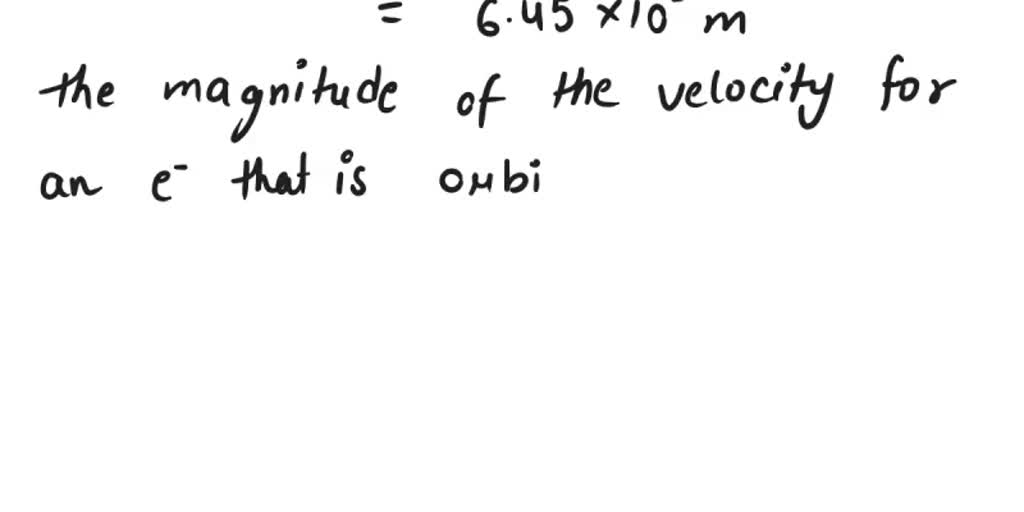 = 6.45 ×10 m
the magnitude of the velocity for
an e⁻ that is orbi